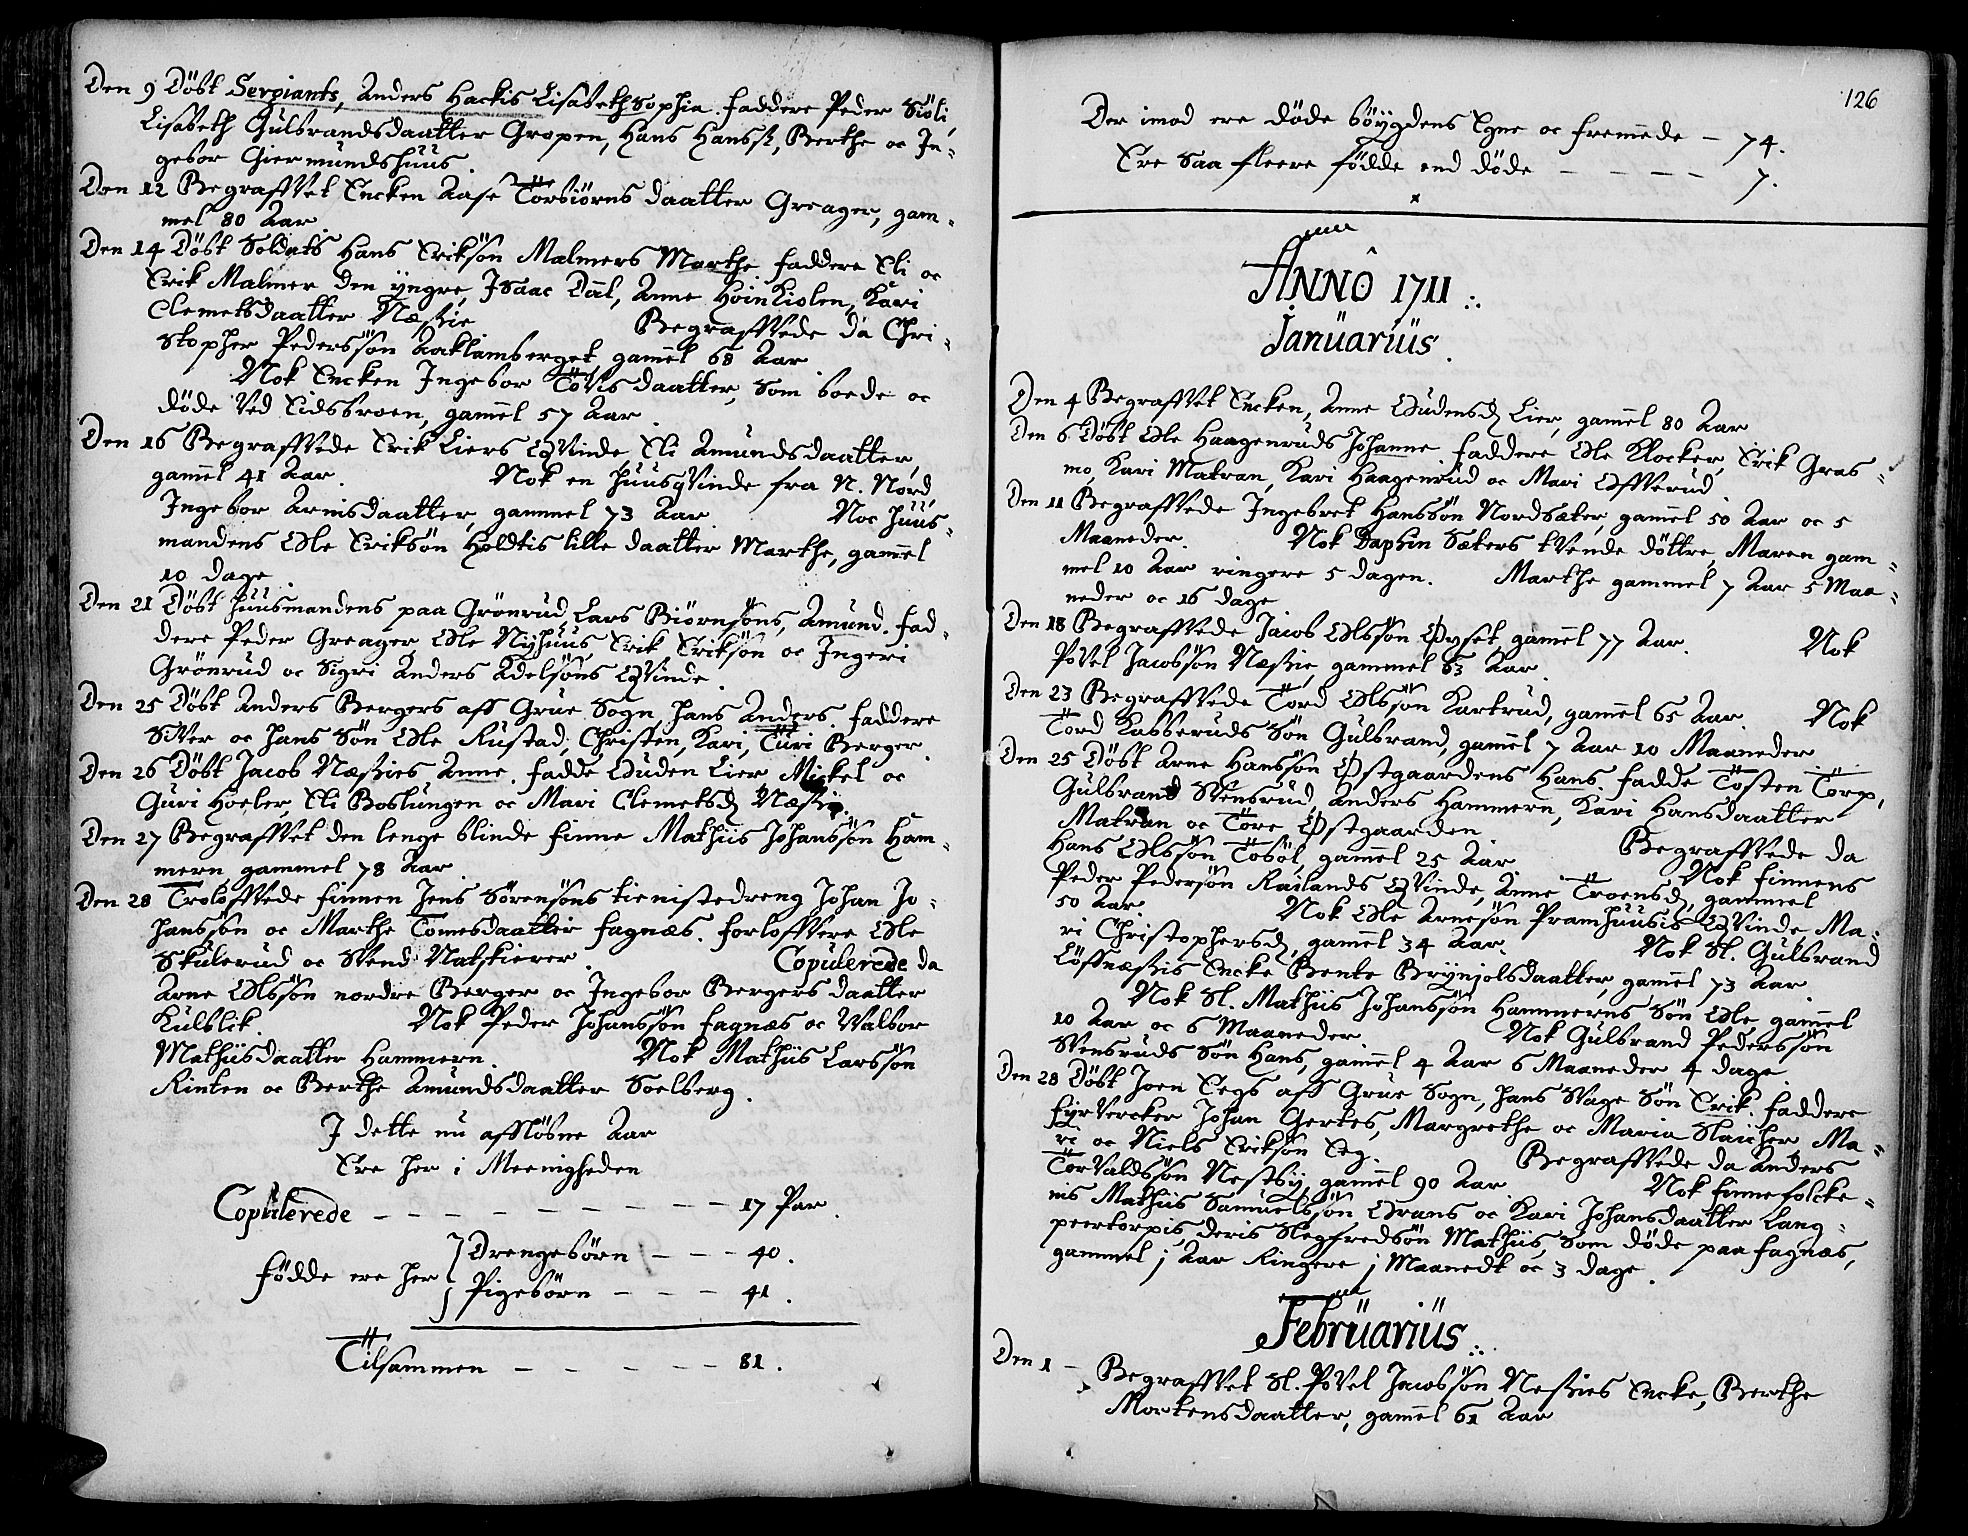 Den 9 Döbt Sergiants, Anders Hackis Lisabeth Sophia. faddere Peder Siöli,
Lisabeth Gulbrandsdaatter Gropen, Hans Hanss: Berthe oc In-
gebor Giermundshuus.
Den 12 Begraffvet Encken Aase Torbiörns daatter Greager, gam-
mel 80 Aar.
Den 14 Döbt Soldats Hans Eriksön Malmers Marthe. faddere Eli oc
Erik Malmer den yngre, Isaac Dal, Anne Hoinkiolen, Kari
Clemetsdaatter Næssie. Begraffvede da Chri-
stopher Pederssön Aaklamberget, gamel 68 Aar.
Nok Encken Ingebor Tovisdaatter, som boede oc
döde ved Eidsbroen, gamel 57 Aar.
Den 16 Begraffvede Erik Liers Qvinde Eli Amundsdaatter,
gamel 41 Aar. Nok en huusqvinde fra N. Nord,
Ingebor Arnisdaatter, gammel 73 Aar. Noc huus-
mandens Ole Eriksön Holdtis lille daatter Marthe, gamel
10 dage.
Den 21 Döbt huusmandens paa Grönrud, Lars Biörnsöns, Amund. fad-
dere Peder Greager, Ole Nyhuus, Erik Eriksön oc Ingeri
Grönrud oc Sigri Anders Adelsöns Qvinde.
Den 25 Döbt Anders Bergers aff Grue Sogn, hans Anders. faddere
Siver oc hans Sön Ole Rustad, Christen, Kari, Turi Berger.
Den 26 Döbt Jacob Næssies Anne. fadde Ouden Lier, Mickel oc
Guri Hoeler, Eli Boslungen oc Mari Clemetsd: Næssie.
Den 27 Begraffvet den lenge blinde finne Mathiis Johanssön Ham-
mern, gammel 78 Aar.
Den 28 Troloffvede finnen Jens Sörensöns tienistedreng Johan Jo-
hanssön oc Marthe Tomesdaatter fagnæs. forloffvere Ole
Skulerud oc Svend Natskierer. Copulerede da
Arne Olssön nordre Berger oc Ingebor Bergers daatter
Kulblik. Nok Peder Johanssön fagnæs oc Valbor
Mathiisdaatter Hammern. Nok Mathiis Larssön
Rinten oc Berthe Amundsdaatter Soelberg.
I dette nu afflösne Aar
Ere her i Meenigheden
Copulerede - - - - - - - - 17 Par.
födde ere her } Drengebörn - - - 40.
Pigebörn - - - 41.
Tilsammen - - - - - 81.
126
Der imod ere döde böygdens Egne oc fremmede - 74.
Ere saa fleere födde end döde - - - - 7.
ANNO 1711.
Januarius.
Den 4 Begraffvet Encken, Anne Oudensd: Lier, gamel 80 Aar
Den 6 Döbt Ole Haagenruds Johanne. faddere Ole Klocker, Erik Gras-
mo, Kari Matran, Kari Haagenrud oc Mari Offverud.
Den 11 Begraffvede Ingebret Hanssön Nordsæter, gamel 50 Aar oc 5
Maaneder. Nok Daphin Sæters tvende döttre, Maren gam-
mel 10 Aar ringere 5 dagen. Marthe gammel 7 Aar 5 Maa-
neder oc 16 dage
Den 18 Begraffvede Jacob Olssön Öyset, gamel 77 Aar. Nok
Povel Jacobsön Næssie, gammel 63 Aar.
Den 23 Begraffvede Tord Olssön Kartrud, gamel 65 Aar. Nok
Tord Kabberuds Sön Gulbrand, gamel 7 Aar 10 Maaneder.
Den 25 Döbt Arne Hanssön Östgaardens Hans. fadde Tosten Torp,
Gulbrand Svensrud, Anders Hammern, Kari Hansdaatter
Matran oc Tore Östgaarden. Begraffvede da
Hans Olssön Toböl, gamel 25 Aar. Nok finnens
Peder Pedersön Raslands Qvinde, Anne Troensd: gammel
50 Aar. Nok Ole Arnesön Pramhuusis Qvinde Ma-
ri Christophersd: gamel 34 Aar. Nok Sl. Gulbrand
Löffnæssis Encke Bente Brynjolsdaatter, gamel 73 Aar.
Nok Sl. Mathiis Johanssön Hammerns Sön Ole gamel
10 Aar oc 6 Maaneder. Nok Gulbrand Pederssön
Svensruds Sön Hans, gamel 4 Aar 6 Maaneder 4 dage.
Den 28 Döbt Joen Eegs aff Grue Sogn, hans svage Sön Erik. faddere
fyrvercker Johan Gertes, Margrethe oc Maria Slaicher, Ma-
ri oc Niels Eriksön Eeg. Begraffvede da Anders
Torvaldssön Nestby, gamel 90 Aar. Nok finnefolcke-
nis Mathiis Samuelssön Orans oc Kari Johansdaatter Lang-
peertorpis, deris Slegfredsön Mathiis, som döde paa fagnæs,
gammel j Aar Ringere j Maanedt oc 3 dage.
Februarius.
Den 1 - Begraffvet Sl. Povel Jacobssön Nessies Encke, Berthe
Mortensdaatter, gamel 61 Aar